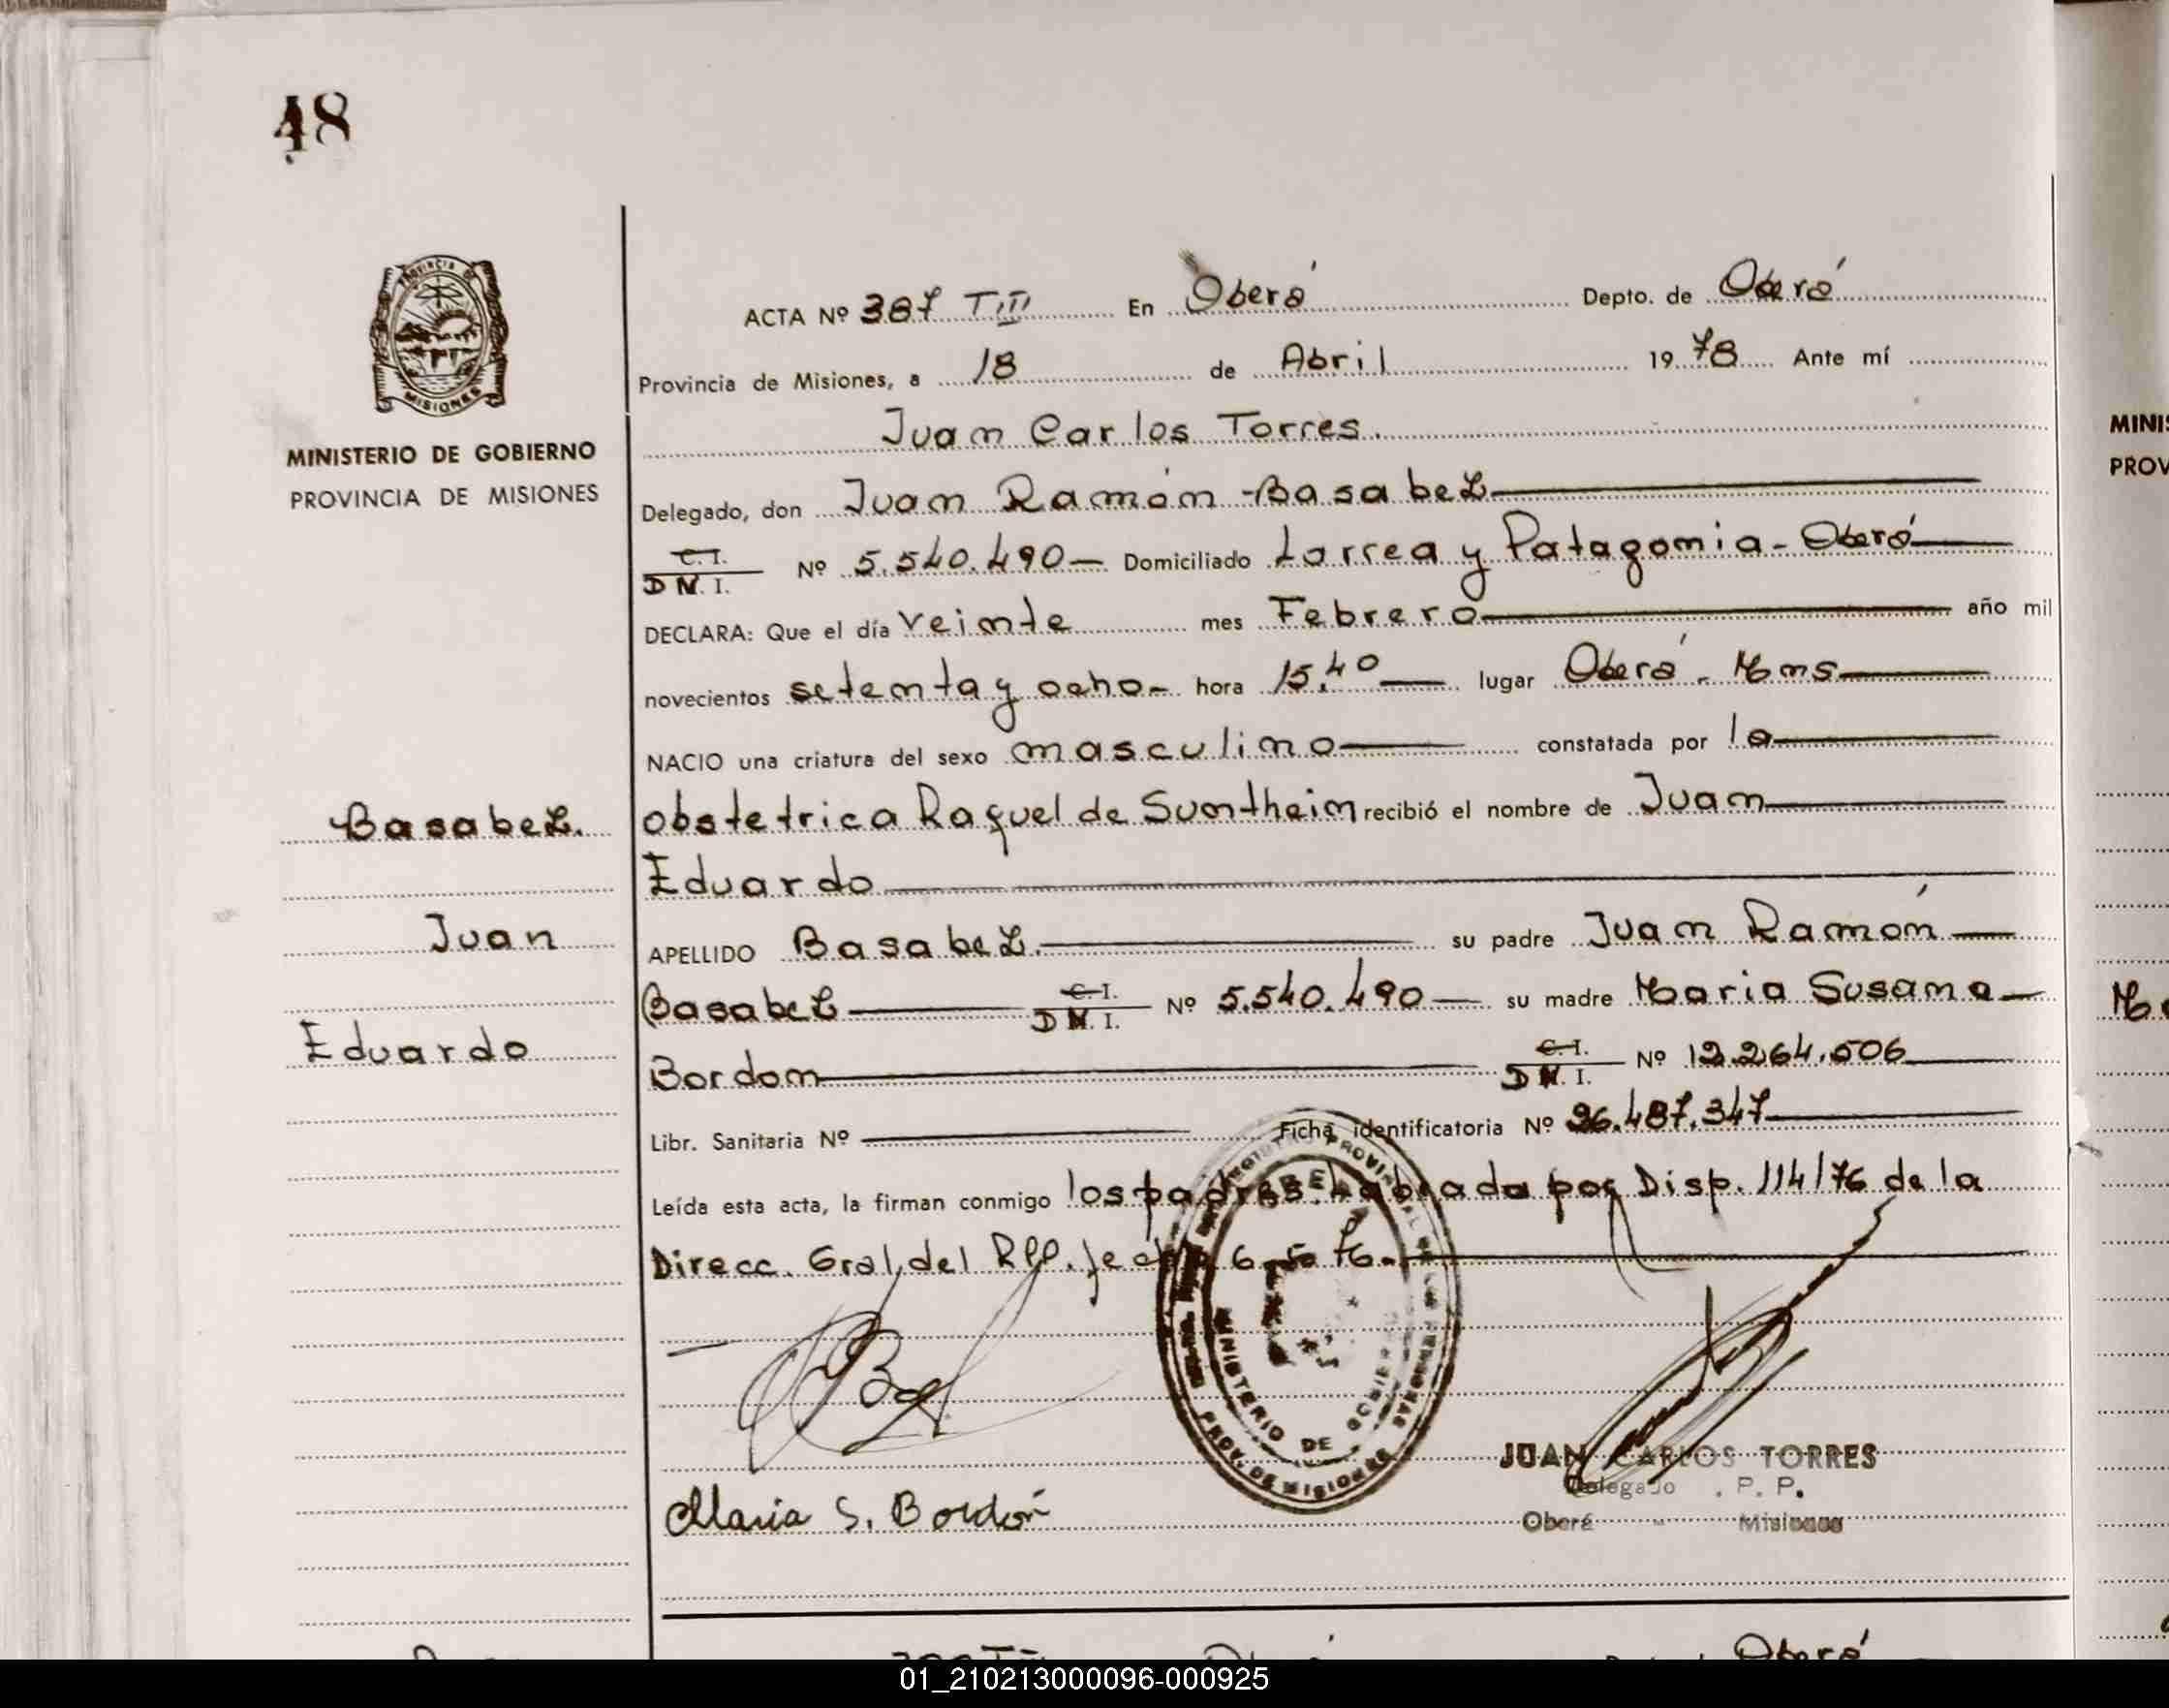 48
PROVINCIA DE
MISIONES
MINISTERIO DE GOBIERNO
PROVINCIA DE MISIONES
Basabez.
Juan
Eduardo
ACTA Nº 387 TIII En Oberá Depto. de Oberá
Provincia de Misiones, a 18 de Abril 1978 Ante mí
Juan Carlos Torres.
Delegado, don Juan Ramón Basabez
C. I.
D N. I. Nº 5.540.490 Domiciliado Larrea y Patagonia - Oberá
DECLARA: Que el día veinte mes Febrero año mil
novecientos setenta y ocho - hora 15.40 lugar Oberá - Mns
NACIO una criatura del sexo masculino constatada por la
obstetrica Raquel de Suntheim recibió el nombre de Juan
Eduardo
APELLIDO Basabez. su padre Juan Ramón
Basabez C. I. D N. I. Nº 5.540.490 su madre Maria Susana
Bordon C. I. D N. I. Nº 12.264.506
Libr. Sanitaria Nº Ficha identificatoria Nº 26.487.347
Leída esta acta, la firman conmigo los padres. Labrada por Disp. 114/76 de la
Direcc. Gral. del RPP. fecha 6-5-76.
MINISTERIO DE GOBIERNO
PROV. DE MISIONES
Maria S. Bordón
JUAN CARLOS TORRES
Delegado P. P.
Oberá - Misiones
Oberá
MINIS
PROV
01_210213000096-000925